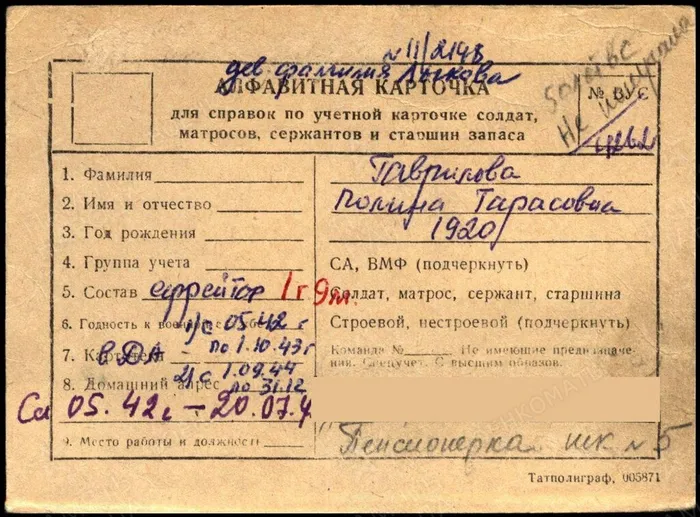 № 11/2148
дев фамилия Лыкова
50 лет ВС
Не получала
АЛФАВИТНАЯ КАРТОЧКА
для справок по учетной карточке солдат,
матросов, сержантов и старшин запаса
№ ВУС
1. Фамилия Гаврилова
2. Имя и отчество Полина Тарасовна
3. Год рождения 1920
4. Группа учета СА, ВМФ (подчеркнуть)
5. Состав ефрейтор 1 г 9 м. Солдат, матрос, сержант, старшина
6. Годность к 1) с 05.42 г Строевой, нестроевой (подчеркнуть)
по 1.10.43 г
7. в ДА Команда № Не имеющие предназначе-
ния. Спецучет. С высшим образов.
2) с 1.09.44
8. Домашний адрес по 31.12
Сл 05.42 г – 20.07.4
9. Место работы и должность Пенсионерка шк № 5
Татполиграф, 005871